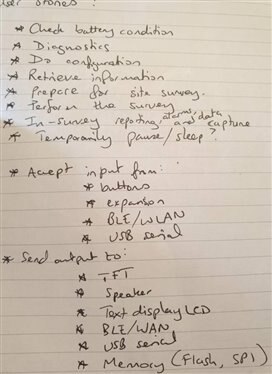 User stories:
* Check battery condition
* Diagnostics
* Do configuration
* Retrieve information
* Prepare for site survey.
* Perform the survey
* In-survey reporting, alarms, and data capture
* Temporarily pause/sleep?
* Accept input from:
* buttons
* expansion
* BLE/WLAN
* USB serial
* Send output to:
* TFT
* Speaker
* Text display LCD
* BLE/WAN
* USB serial
* Memory (Flash, SPI)